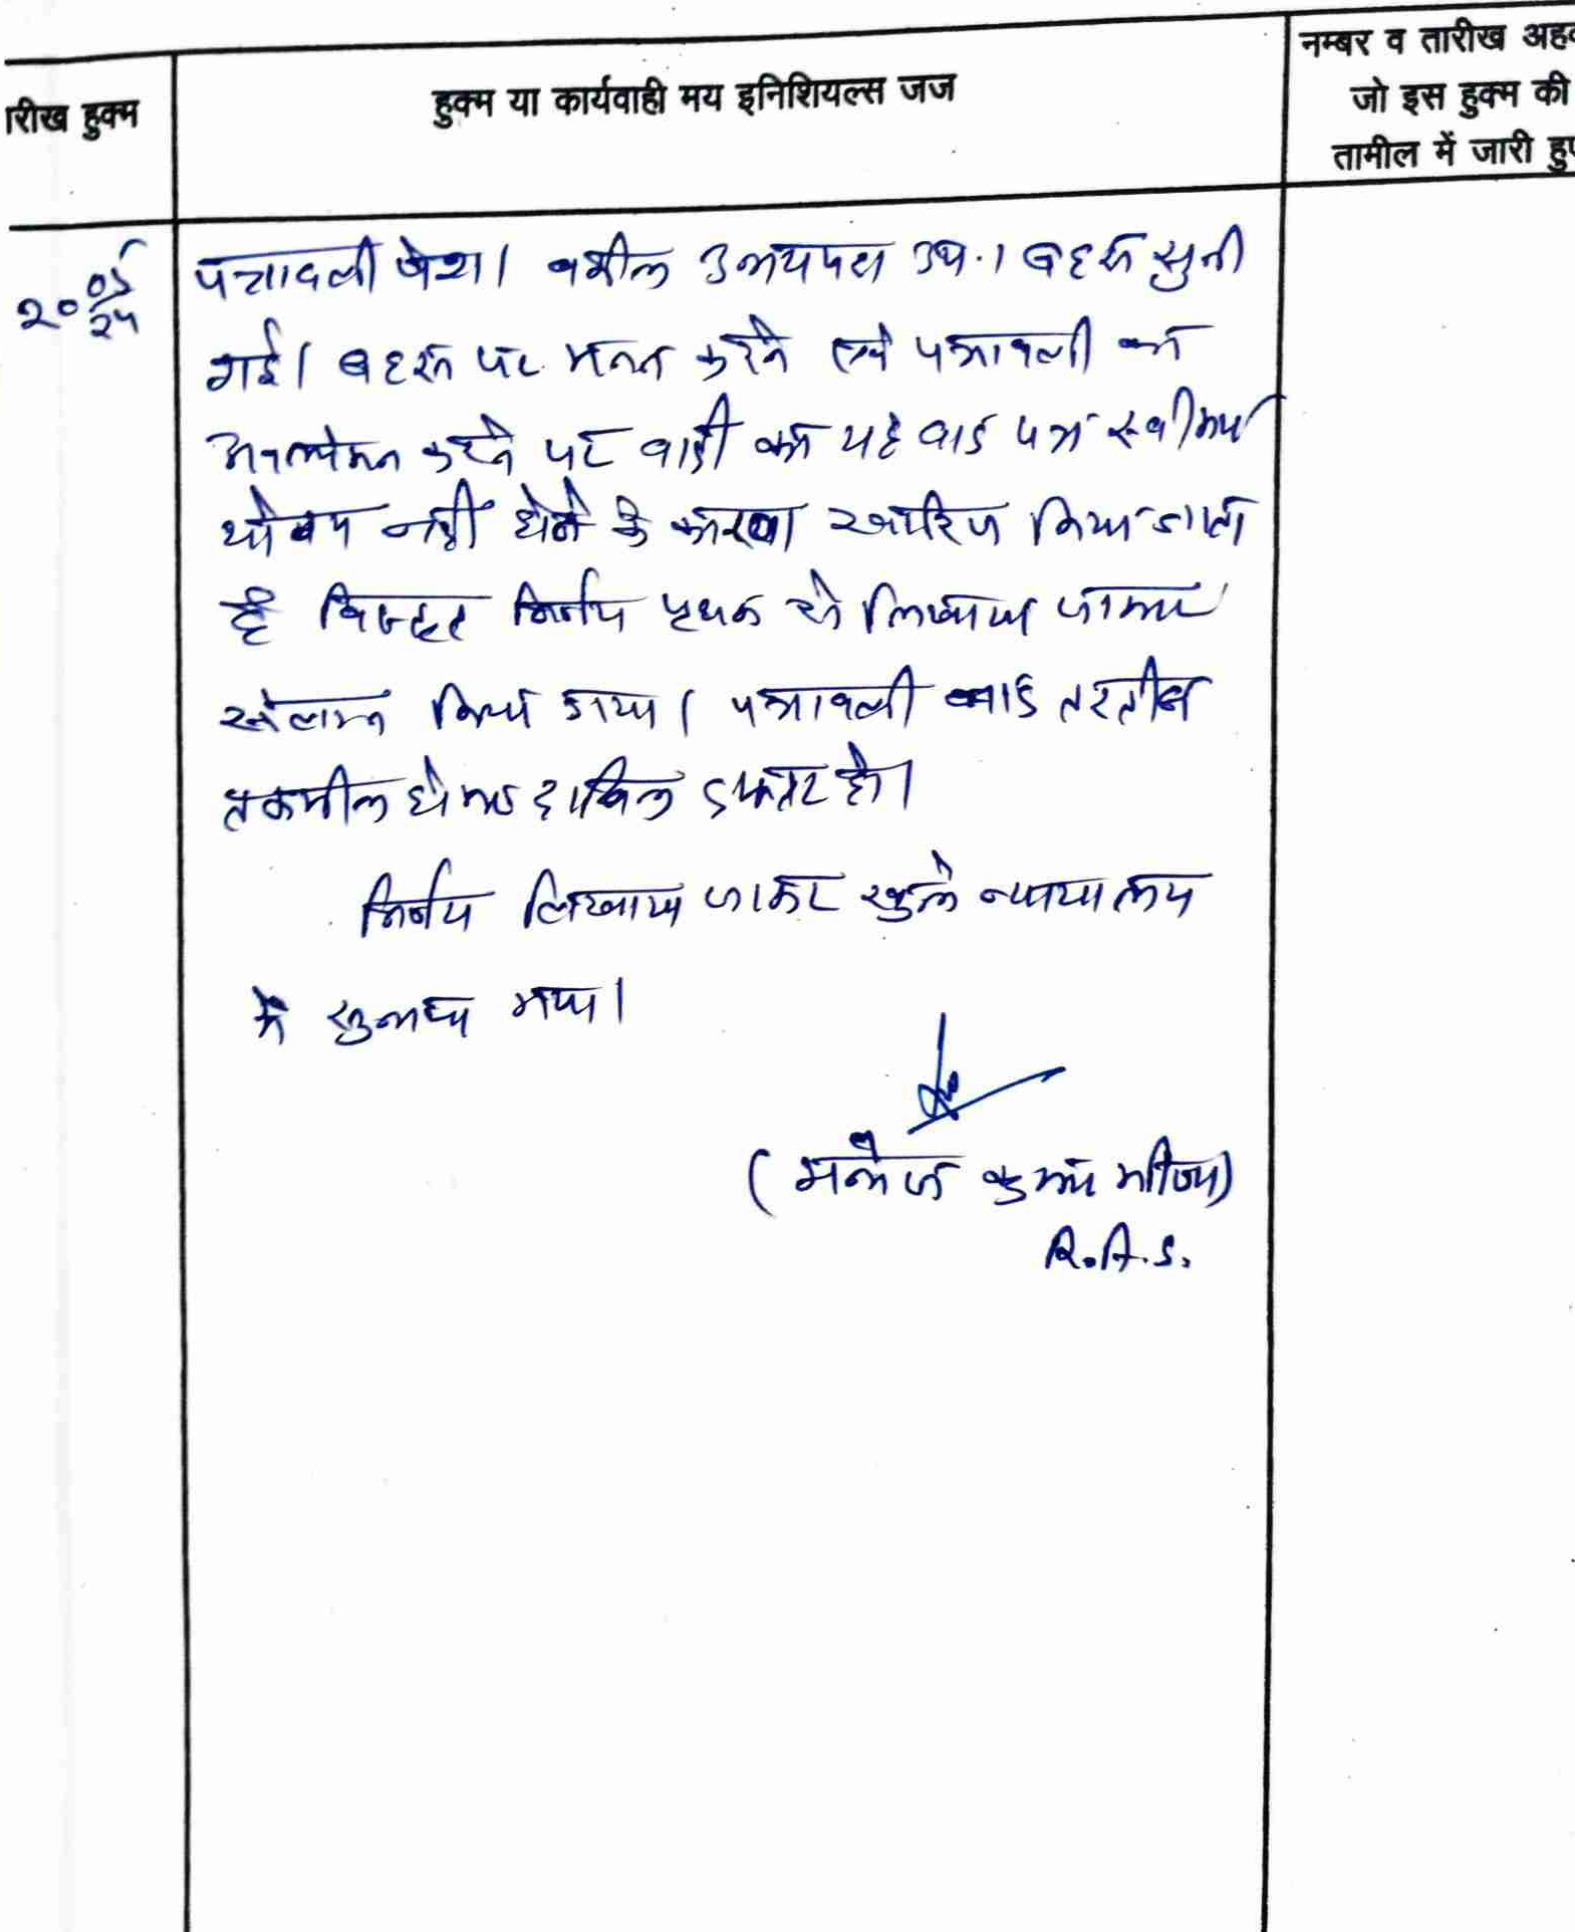 नम्बर व तारीख अह
रीख हुक्म
हुक्म या कार्यवाही मय इनिशियल्स जज
जो इस हुक्म की
तामील में जारी हु
20 05/24
पत्रावली पेश। वकील उभयपक्ष उप.। बहस सुनी
गई। बहस पर मनन करने एवं पत्रावली का
अवलोकन करने पर वादी का यह वाद पत्र स्वीकार
योग्य नहीं होने के कारण खारिज किया जाता
है विस्तृत निर्णय पृथक से लिखाया जाकर
किया गया। पत्रावली बाद तरतीब
तकमील होकर दाखिल दफ्तर हो।
निर्णय लिखाया जाकर खुले न्यायालय
में सुनाया गया।
(मनोज कुमार मीणा)
R.A.S.